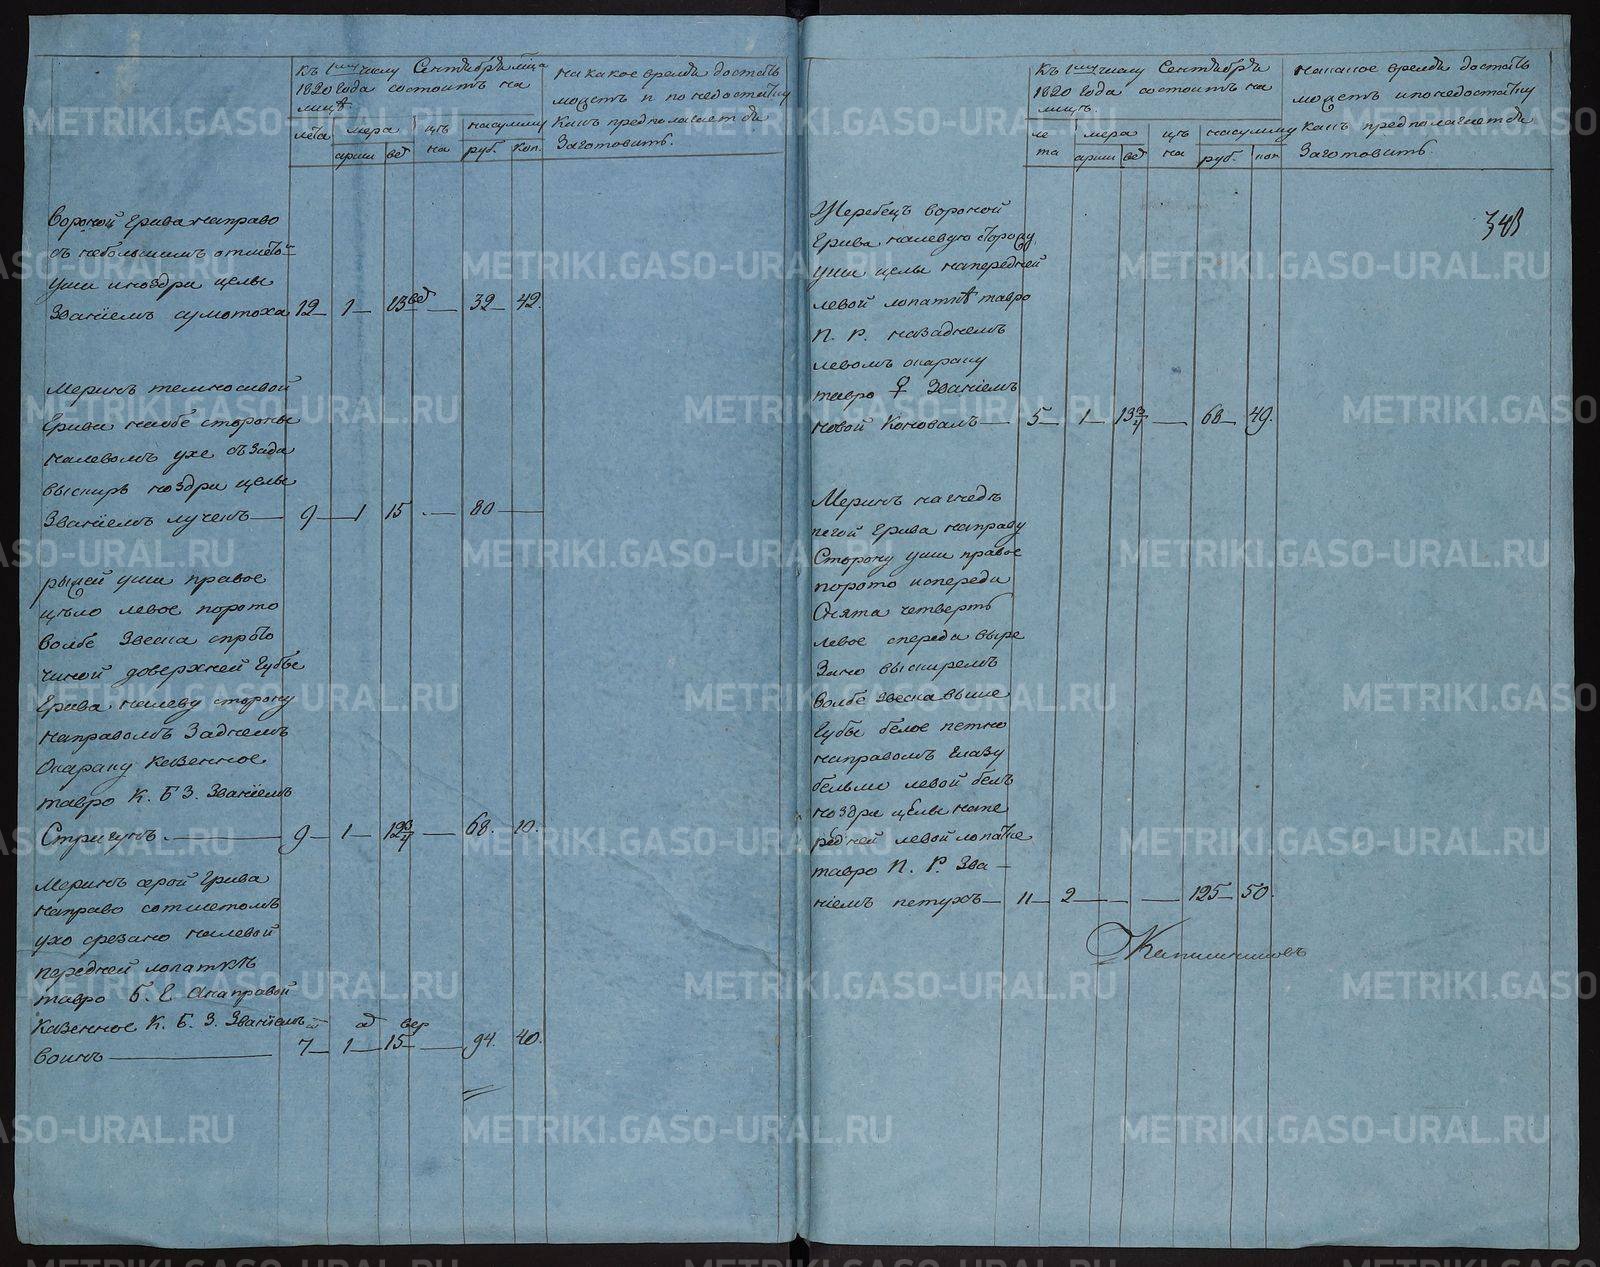 Къ 1му числу Сентября мѣсяца
1820 года состоитъ на
лицѣ
на какое время достать
можетъ и по недостатку
какъ предполагается
Заготовить.
лѣта мера цѣна на сумму
арши вер руб. коп.
Вороной грива направо
съ небольшимъ отмето-
уши и ноздри целы
Званіемъ сумотоха 12 1 13 вер 32 42.
Меринъ темносивой
грива наобе стороны
налевомъ ухе съзади
выскирь ноздри целы
Званіемъ лучекъ 9 1 15 80
рыжей уши правое
цѣло левое порото
волбе Звезда спроточиной
доверхней губы
Грива налеву сторону
направомъ Заднемъ
Окараку Казенное
тавро К. Б. З. Званіемъ
Стригунъ 9 1 12 3/4 68. 10.
Меринъ серой грива
направо сотметомъ
ухо срезано налевой
передней лопаткѣ
тавро Б. Е. анаправой
Казенное К. Б. З. Званіемъ
воинъ 7 1 15 вер 94. 40.
Къ 1му числу Сентября
1820 года состоитъ на
лицѣ.
на какое время достать
можетъ ипонедостатку
какъ предполагается
Заготовить.
лета мера цѣна на сумму
арши вер руб. коп
348
Жеребецъ вороной
Грива налевую сторону
уши целы напередней
левой лопаткѣ тавро
П. Р. назаднемъ
левомъ окараку
тавро ♀ Званіемъ
новой Коновалъ 5 1 13 3/4 68 49.
Меринъ нагнедъ
пегой Грива направу
Сторону уши правое
порото испереди
Снята четверть
левое спереди вырезано
выскиремъ
волбе Звезда выше
Губы белое петно
направомъ Глазу
бельмо левой белъ
ноздри целы напередней
левой лопатке
тавро П. Р. Зва-
ніемъ петухъ 11 2 125 50.